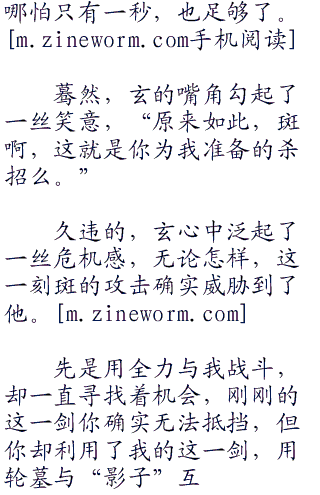 哪怕只有一秒，也足够了。
[m.zineworm.com手机阅读]
蓦然，玄的嘴角勾起了
一丝笑意，“原来如此，斑
啊，这就是你为我准备的杀
招么。”
久违的，玄心中泛起了
一丝危机感，无论怎样，这
一刻斑的攻击确实威胁到了
他。[m.zineworm.com]
先是用全力与我战斗，
却一直寻找着机会，刚刚的
这一剑你确实无法抵挡，但
你却利用了我的这一剑，用
轮墓与“影子”互